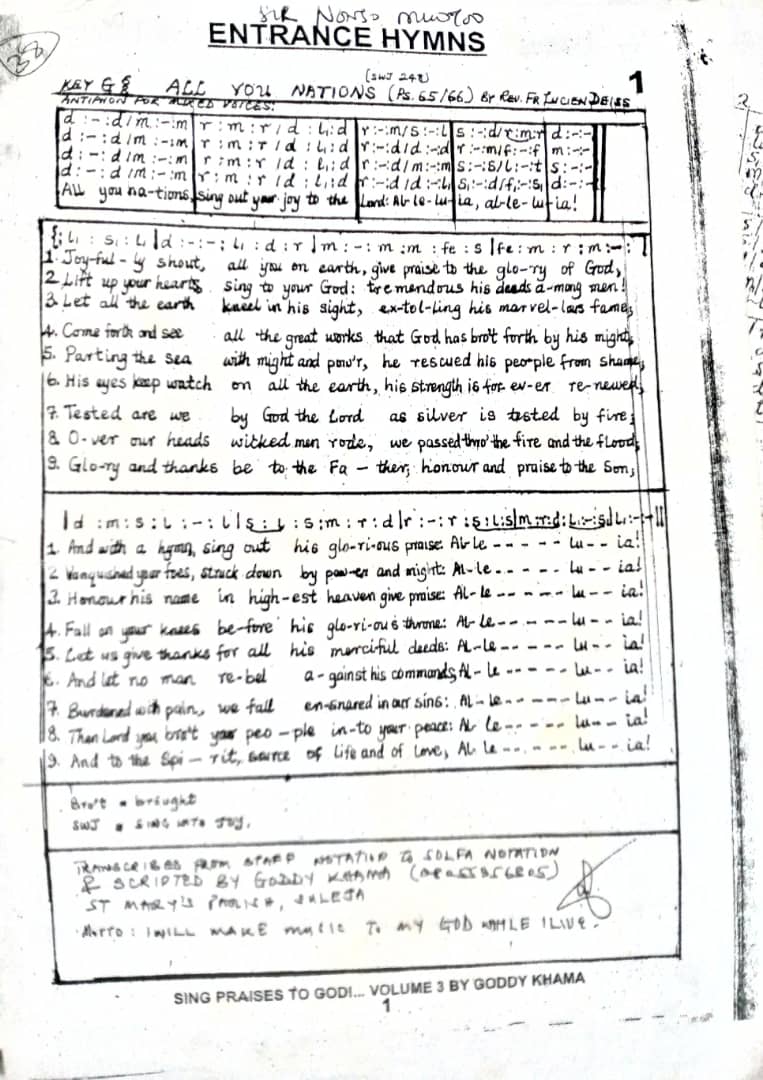 SIR NONSO
38
ENTRANCE HYMNS
1
(SWJ 248)
KEY G§ ALL YOU NATIONS (Ps. 65/66) BY REV. FR LUCIEN DEISS
ANTIPHON FOR MIXED VOICES:
d : - : d / m : - : m | r : m : r / d : l₁ : d | r : - : m / s : - : l | s : - : d / r : m : r | d : - : -
d : - : d / m : - : m | r : m : r / d : l₁ : d | r : - : d / d : - : d | r : - : m / f : - : f | m : - : -
d : - : d / m : - : m | r : m : r / d : l₁ : d | r : - : d / m : - : m | s : - : s / l : - : t | s : - : -
d : - : d / m : - : m | r : m : r / d : l₁ : d | r : - : d / d : - : l₁ | s₁ : - : d / f₁ : - : s₁ | d : - : -
All you na-tions, sing out your joy to the Lord: Al-le-lu-ia, al-le-lu-ia!
{: l₁ : s₁ : l₁ | d : - : - ; l₁ : d : r | m : - : m : m : fe : s | fe : m : r ; m : - :
1. Joy-ful-ly shout, all you on earth, give praise to the glo-ry of God,
2 Lift up your hearts, sing to your God: tremendous his deeds a-mong men!
3 Let all the earth kneel in his sight, ex-tol-ling his marvel-lous fame,
4. Come forth and see all the great works that God has bro't forth by his might,
5. Parting the sea with might and pow'r, he rescued his people from shame,
6. His eyes keep watch on all the earth, his strength is for-ev-er re-newed,
7. Tested are we by God the Lord as silver is tested by fire;
8. O-ver our heads wicked men rode, we passed thro' the fire and the flood,
9. Glo-ry and thanks be to the Fa - ther, honour and praise to the Son,
| d : m : s : l : - : l | s : l : s : m : r : d | r : - : r : s : l : s | m : r : d : l₁ : - : s₁ | l₁ : - : - ||
1. And with a hymn, sing out his glo-ri-ous praise: Al-le - - - - - lu - - ia!
2 Vanquished your foes, struck down by pow-er and might: Al-le - - - - - lu - - ia!
3. Honour his name in high-est heaven give praise: Al-le - - - - - lu - - ia!
4. Fall on your knees be-fore his glo-ri-ous throne: Al-le - - - - - lu - - ia!
5. Let us give thanks for all his merciful deeds: Al-le - - - - - lu - - ia!
6. And let no man re-bel a-gainst his commands, Al-le - - - - - lu - - ia!
7. Burdened with pain, we fall en-snared in our sins: Al-le - - - - - lu - - ia!
8. Then Lord you bro't your peo-ple in-to your peace: Al-le - - - - - lu - - ia!
9. And to the Spi-rit, source of life and of love, Al-le - - - - - lu - - ia!
Bro't = brought
SWJ = SING INTO JOY.
TRANSCRIBED FROM STAFF NOTATION TO SOLFA NOTATION
& SCRIPTED BY GODDY KHAMA
ST MARY'S PARISH, SULEJA
MOTTO: I WILL MAKE MUSIC TO MY GOD WHILE I LIVE.
SING PRAISES TO GOD!... VOLUME 3 BY GODDY KHAMA
1